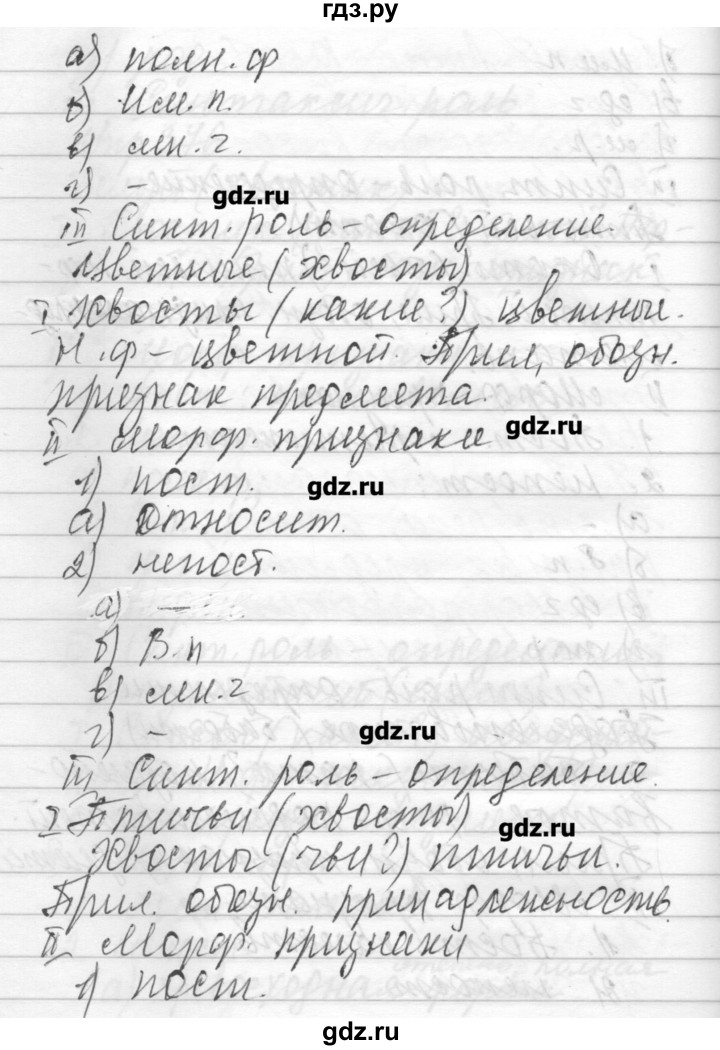 гдз.ру
а) полн. ф
б) Им. п.
в) мн. ч.
г) –
gdz.ru
III Синт. роль – определение.
Цветные (хвосты)
I Хвосты (какие?) цветные.
Н. ф – цветной. Прил, обозн.
признак предмета.
gdz.ru
II Морф. признаки
1) пост.
gdz.ru
а) относит.
2) непост.
а) –
б) В. п
в) мн. ч
г) –
gdz.ru
III Синт. роль – определение.
I Птичьи (хвосты)
gdz.ru
Хвосты (чьи?) птичьи.
Прил. обозн. принадлежность.
II Морф. признаки
1) пост.
gdz.ru